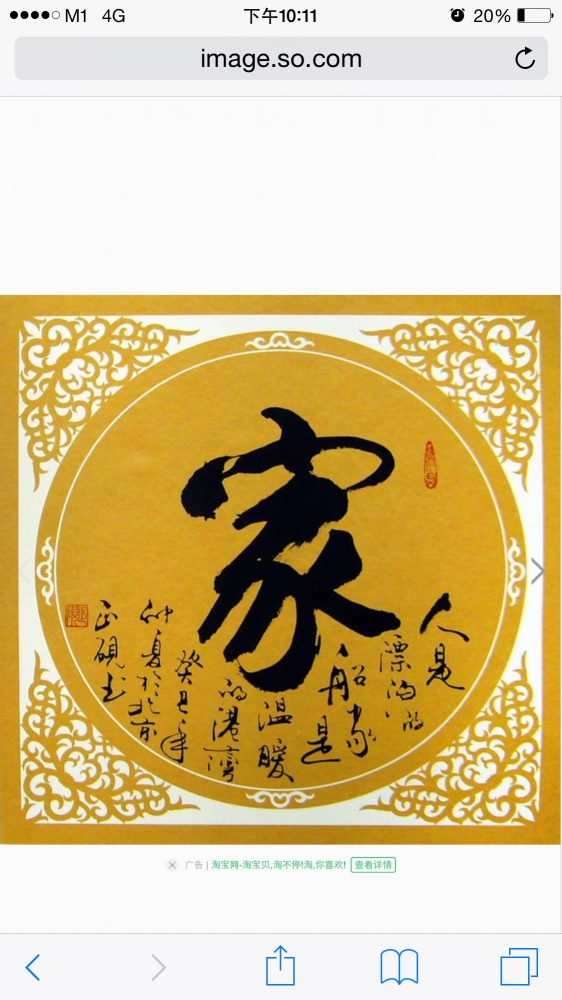 M1 4G 下午10:11 20%
image.so.com
家
人是
漂泊的
船家是
温暖
的港湾
癸巳年
仲夏於北京
正砚书
广告 | 淘宝网-淘宝贝,淘不停!淘,你喜欢! 查看详情